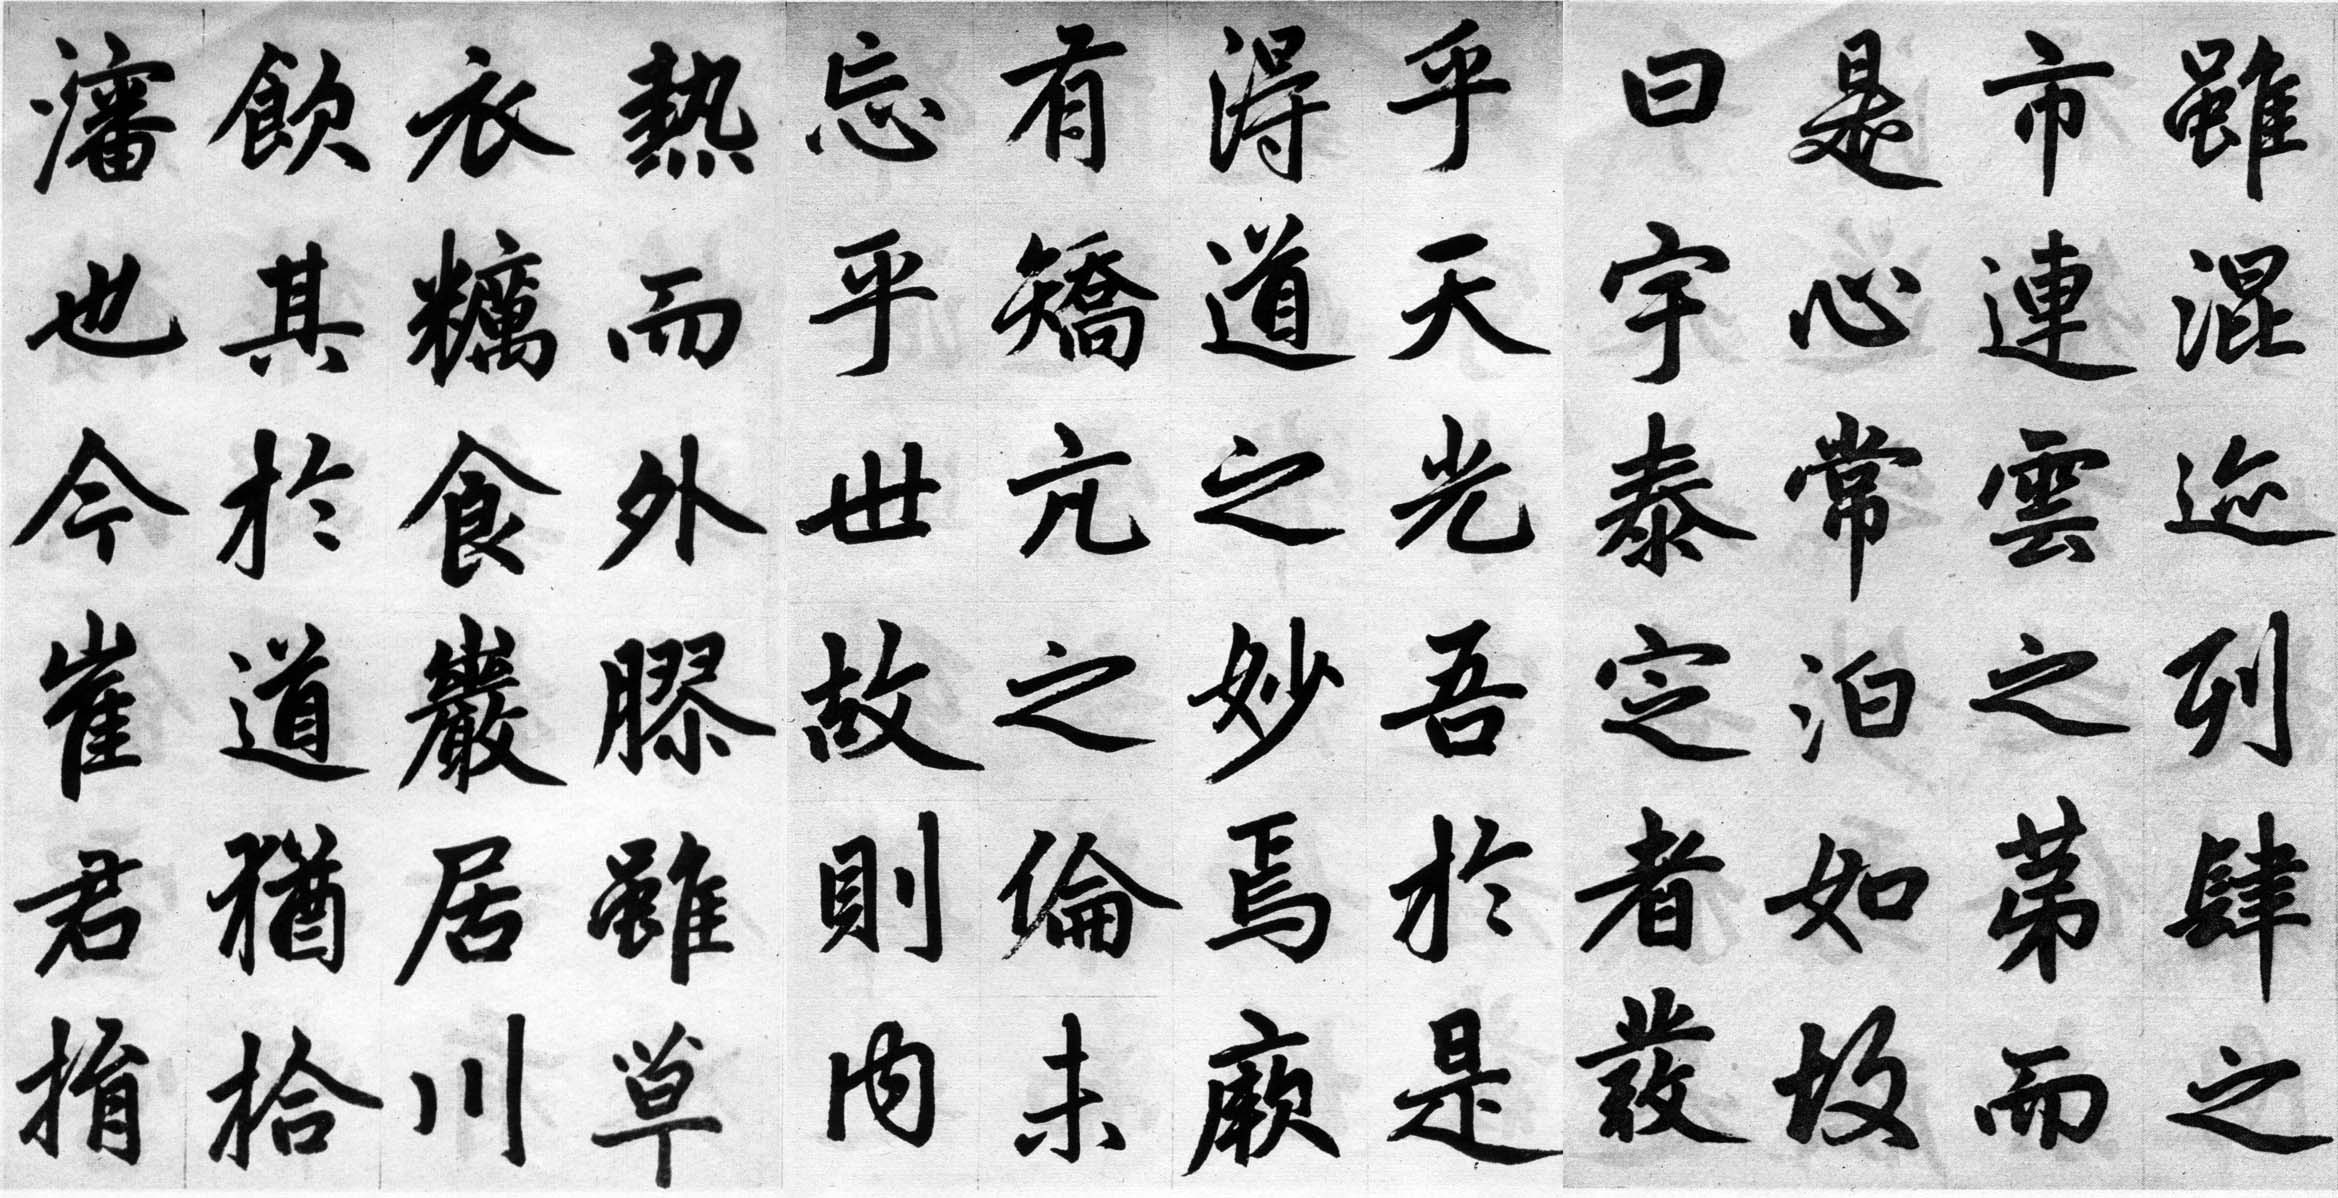 雖混迹列肆之
市連雲之第而
是心常泊如故
曰宇泰定者發
乎天光吾於是
得道之妙焉厥
有矯亢之倫未
忘乎世故則内
熱而外膠雖草
衣糲食巖居川
飲其於道猶拾
瀋也今崔君捐